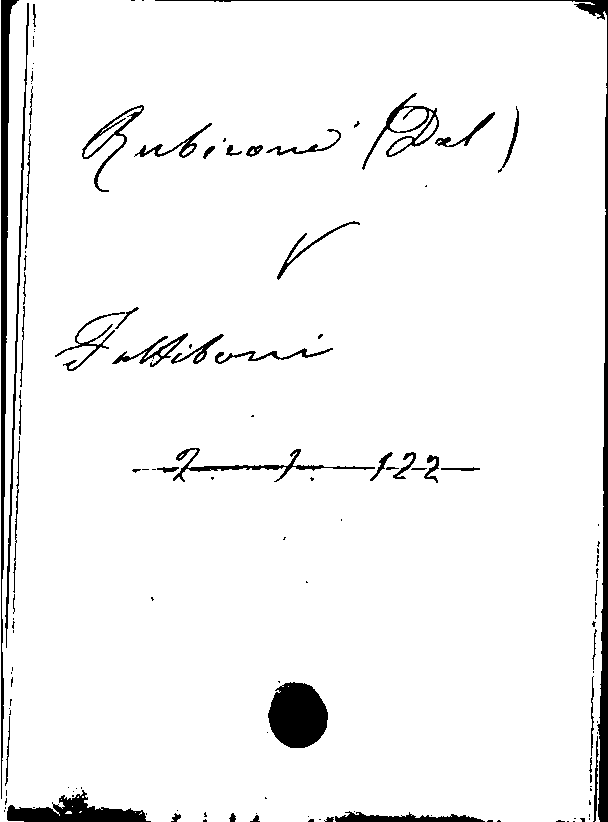 Rubicone (Dal)
V
Fattiboni
2. 1. 122